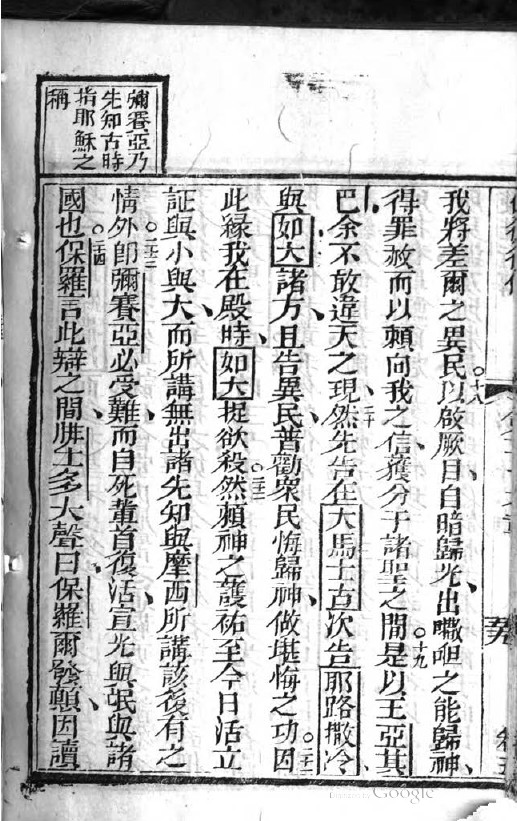 我將差爾之異民以啟厥目自暗歸光出㘔呾之能歸神
得罪赦而以賴向我之信獲分于諸聖之間是以王亞其
巴余不敢違天之現然先告在大馬士古次告耶路撒冷
與如大諸方且告異民普勸衆民悔歸神做堪悔之功因
此緣我在殿時如大捉欲殺然賴神之護祐至今日活立
証與小與大而所講無出諸先知與摩西所講該後有之
情外即彌賽亞必受難而自死輩首復活宣光與民與諸
國也保羅言此辯之間腓士多大聲曰保羅爾發顛因讀
十八
十九
二十
二十一
二十二
二十三
二十四
彌賽亞乃
先知古時
指耶穌之
稱
Google